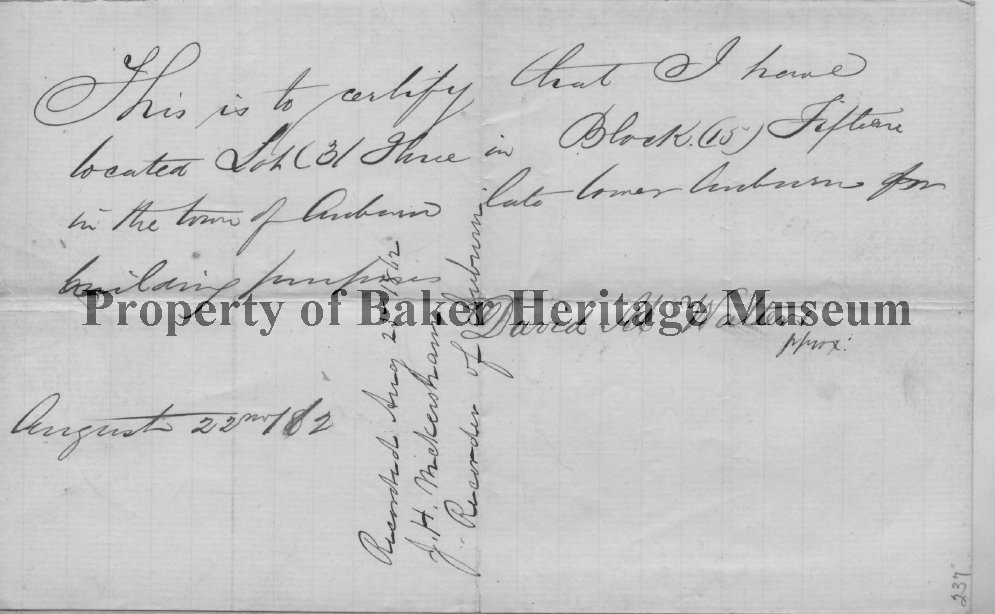 This is to certify that I have
located Lot (3) Three in Block (15) Fifteen
in the town of Auburn late lower Auburn for
building purposes
Property of Baker Heritage Museum
David Walters
August 22nd 1862
Recorded Aug 23 1862
J. H. Mickersham
Recorder of Auburn
237